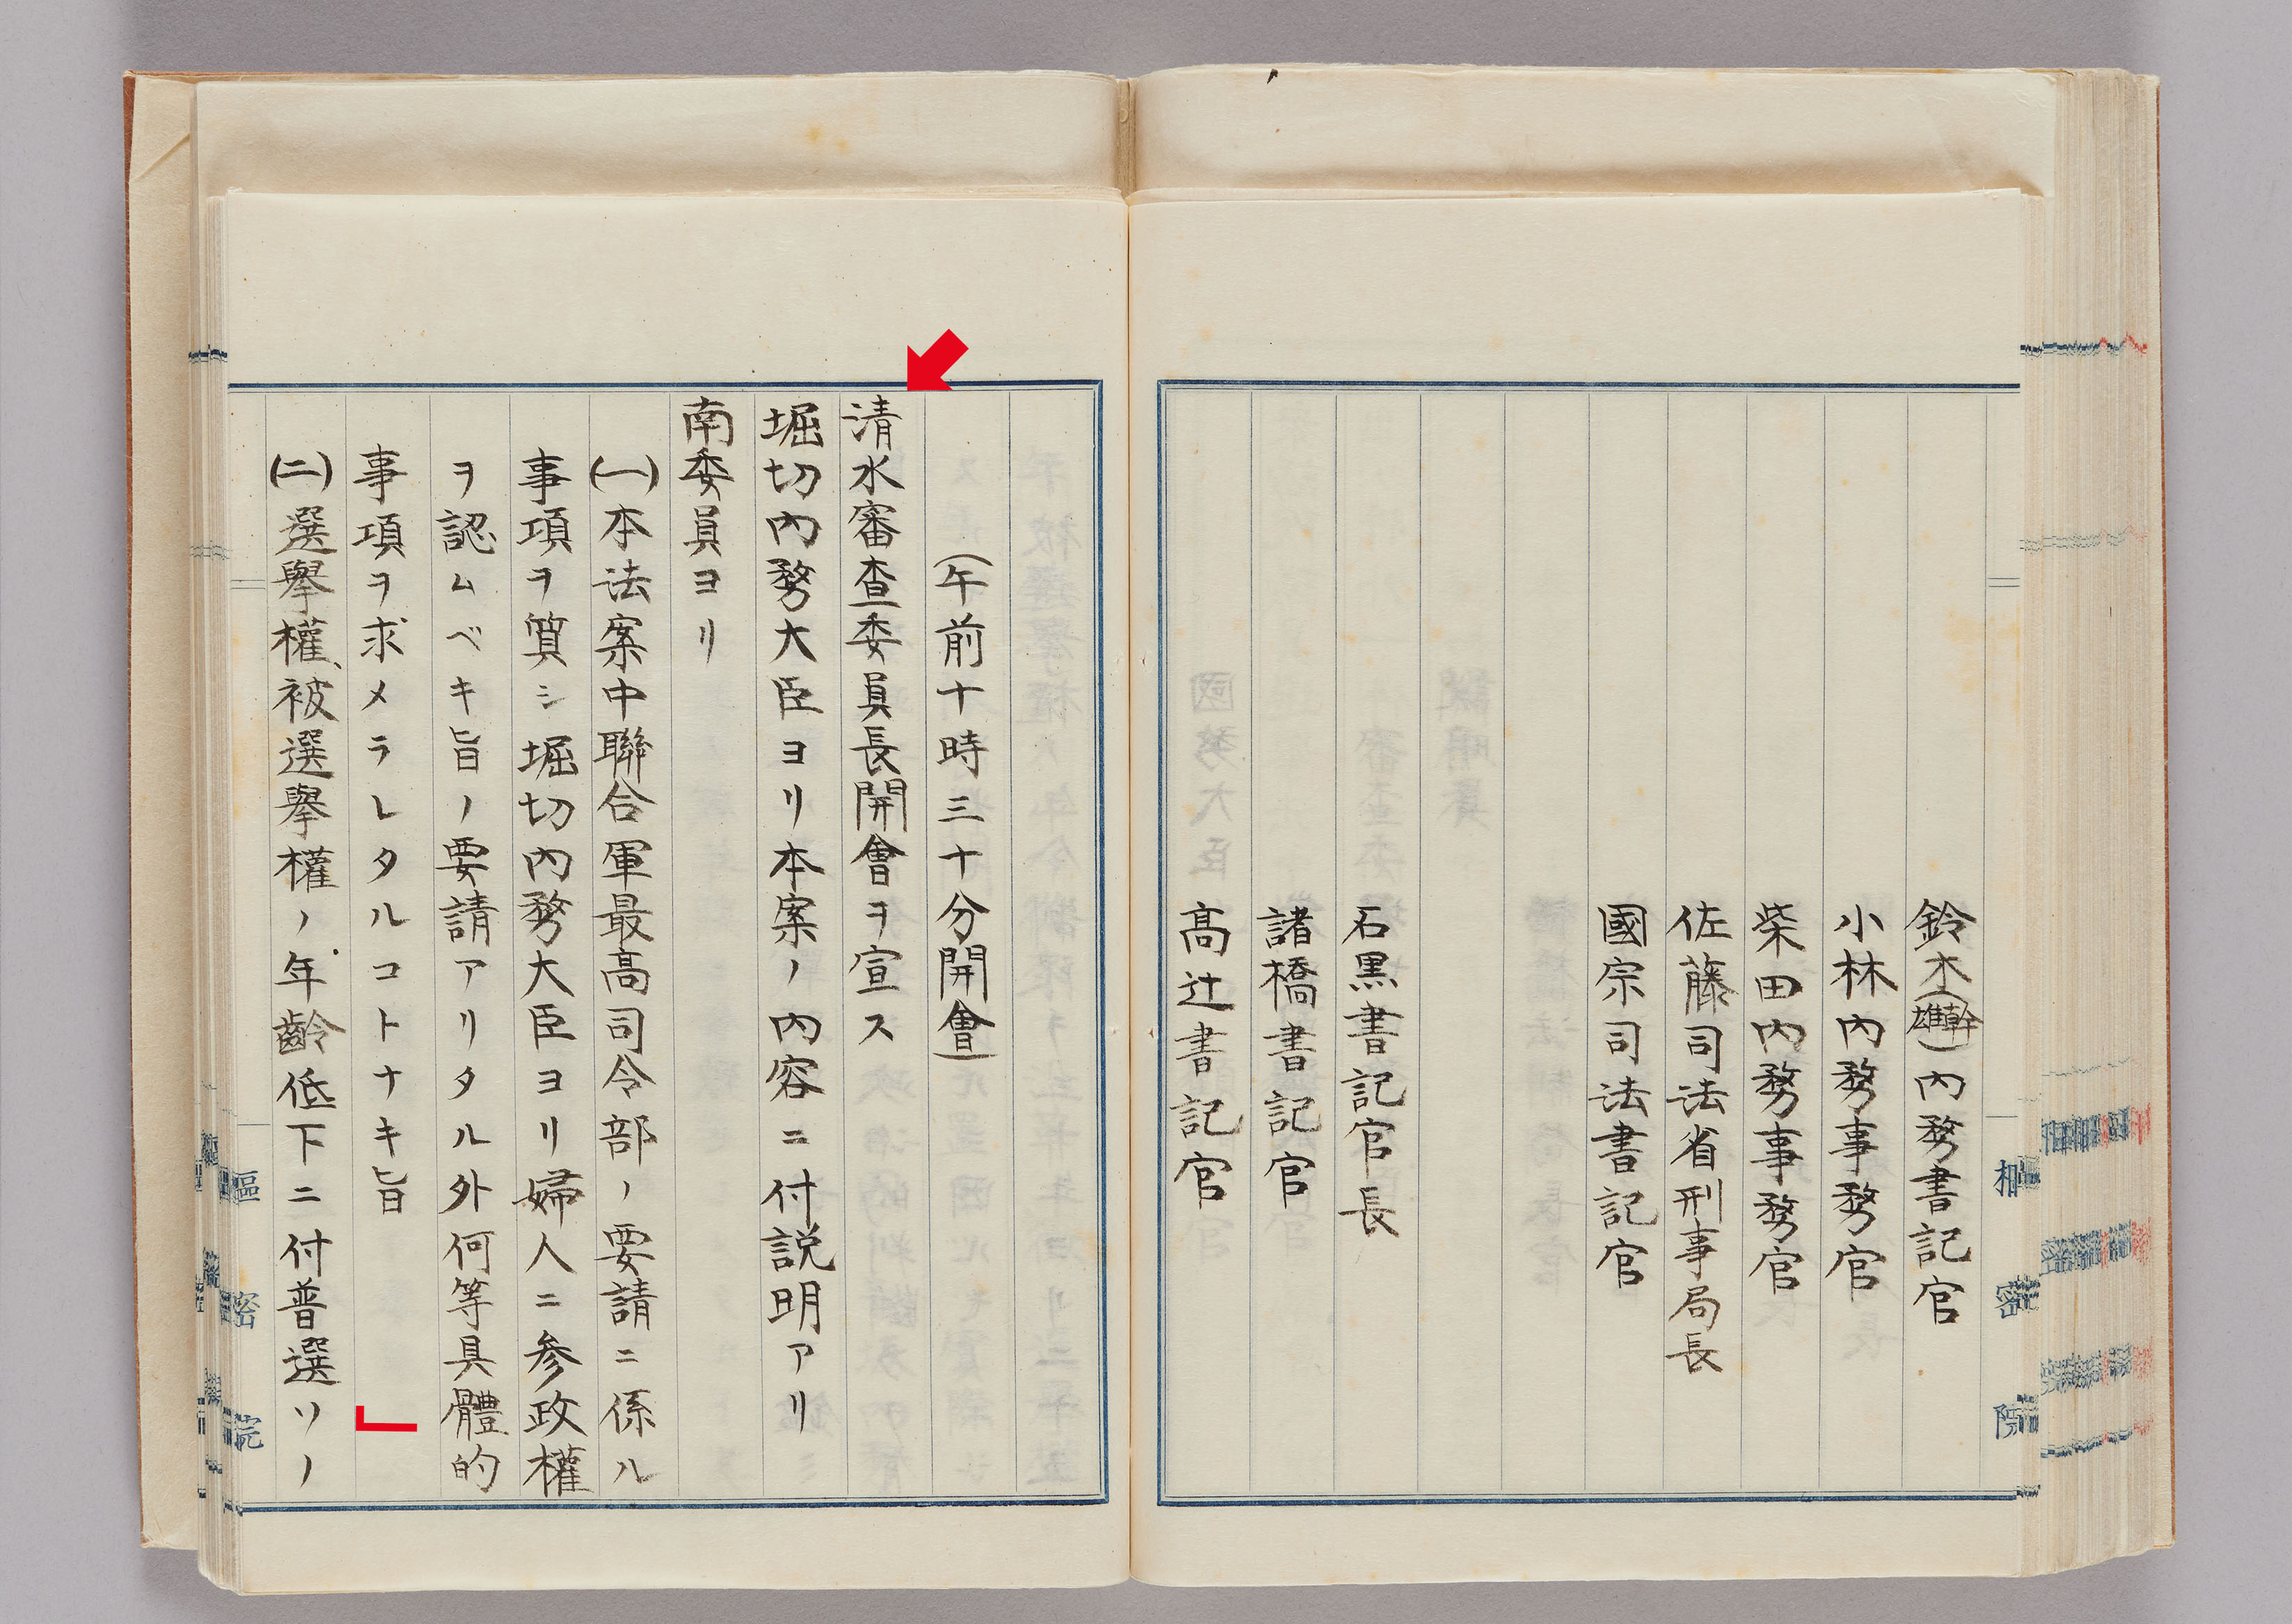 鈴木(幹雄)内務書記官
小林内務事務官
柴田内務事務官
佐藤司法省刑事局長
國宗司法書記官
石黒書記官長
諸橋書記官
高辻書記官
(午前十時三十分開會)
清水審査委員長開會ヲ宣ス
堀切内務大臣ヨリ本案ノ内容ニ付説明アリ
南委員ヨリ
(一)本法案中聯合軍最高司令部ノ要請ニ係ル
事項ヲ質シ堀切内務大臣ヨリ婦人ニ参政權
ヲ認ムベキ旨ノ要請アリタル外何等具體的
事項ヲ求メラレタルコトナキ旨
(二)選擧權、被選擧權ノ年齢低下ニ付普選ソノ
樞密院